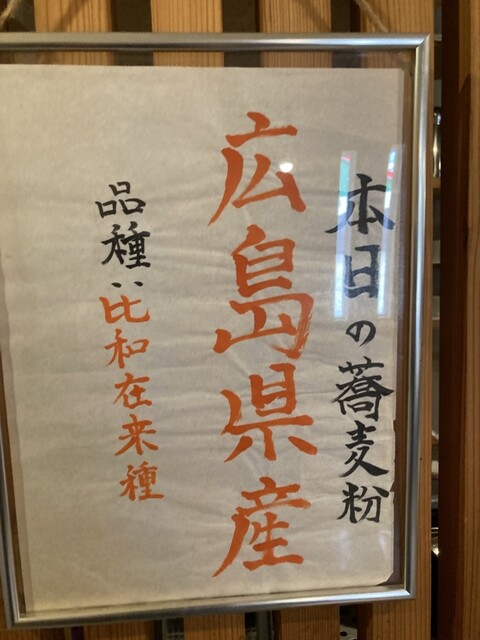 本日の蕎麦粉
広島県産
品種:比和在来種